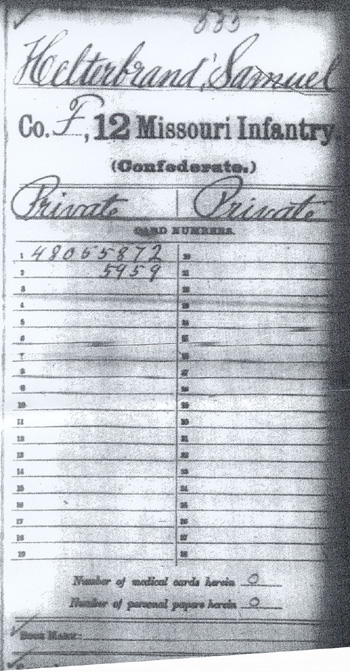 533
Helterbrand, Samuel
Co. F, 12 Missouri Infantry.
(Confederate.)
Private Private
CARD NUMBERS.
1 48055872 20
2 5959 21
3
4
5
6
7
8
9
10
11
12
13
14
15
16
17
18
19
Number of medical cards herein 0
Number of personal papers herein 0
BOOK MARK: